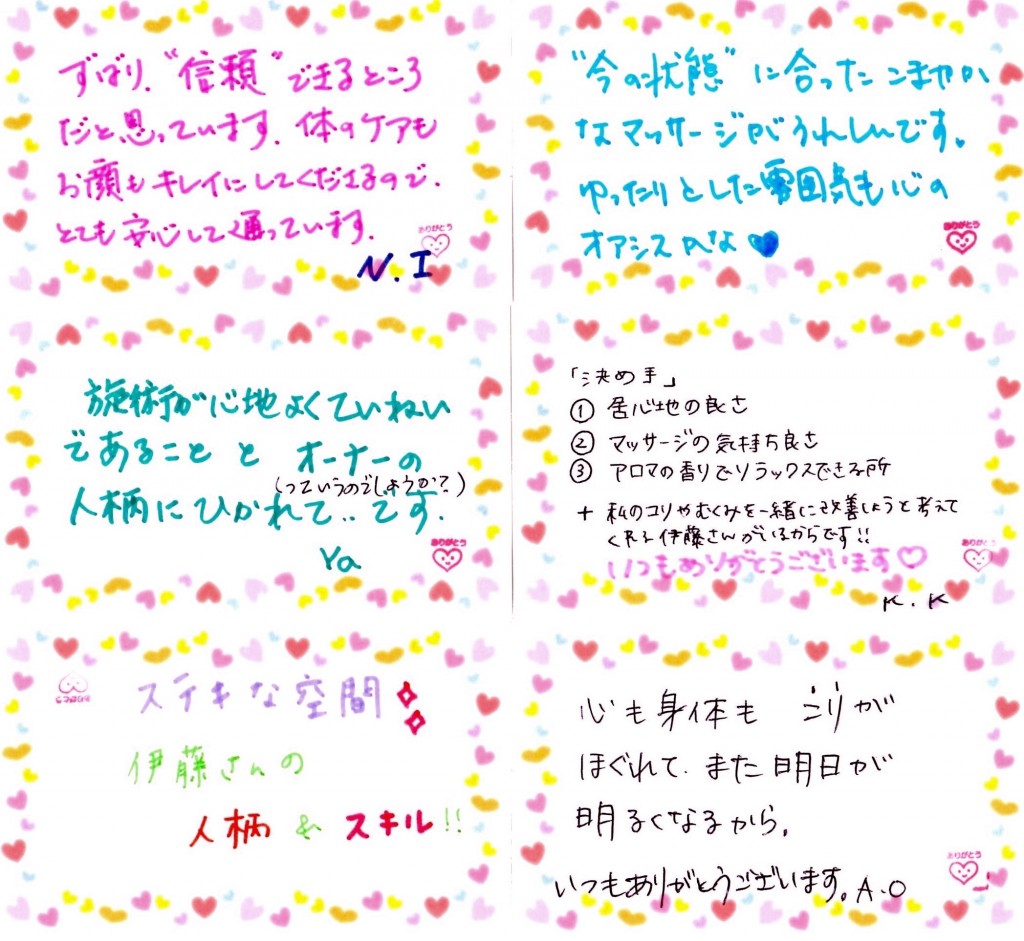 ずばり、"信頼"できるところ
だと思っています。体のケアも
お顔もキレイにしてくださるので、
とても安心して通っています。
ありがとう
N.I
"今の状態"に合ったこまやか
なマッサージがうれしいです。
ゆったりとした雰囲気も心の
オアシスかな♥
ありがとう
施術が心地よくていねい
であることと オーナーの
(っていうのでしょうか?)
人柄にひかれて‥です。
Ya
ありがとう
「決め手」
① 居心地の良さ
② マッサージの気持ち良さ
③ アロマの香りでリラックスできる所
+ 私のコリやむくみを一緒に改善しようと考えて
くれる伊藤さんがいるからです!!
いつもありがとうございます♡
ありがとう
K.K
ありがとう
ステキな空間
伊藤さんの
人柄 & スキル!!
心も身体も コリが
ほぐれて、また明日が
明るくなるから。
ありがとう
いつもありがとうございます。A.O